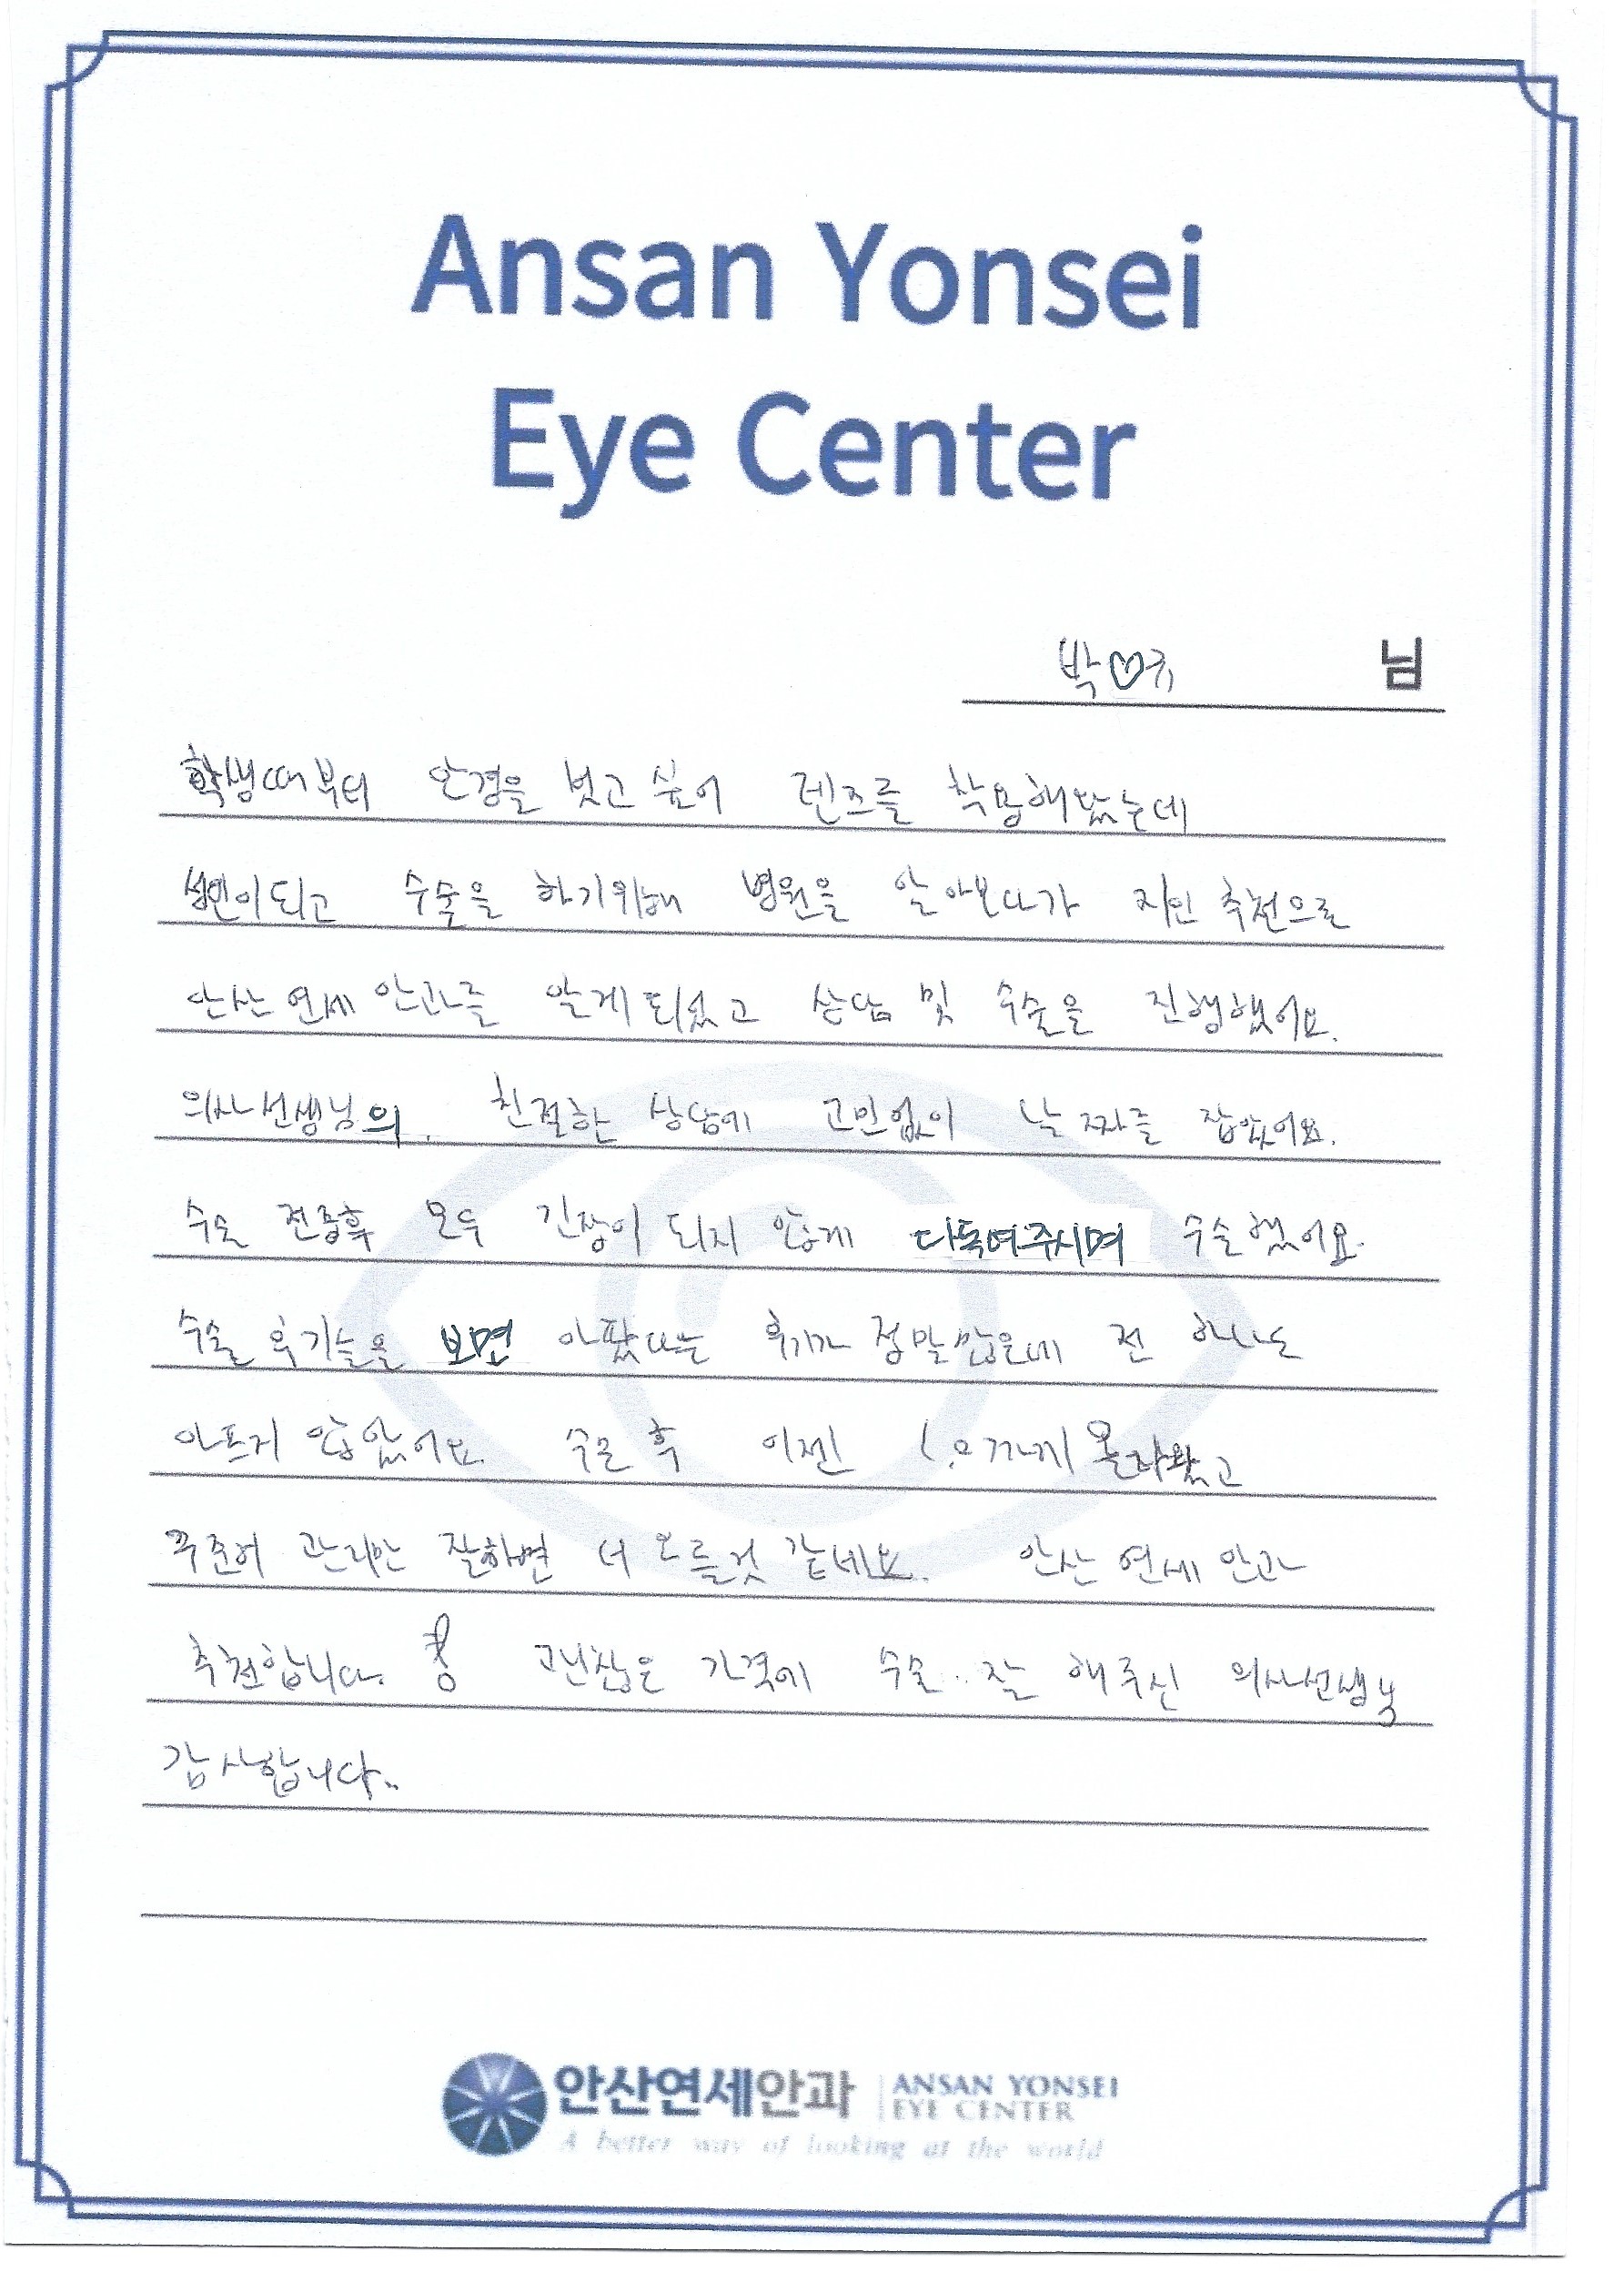 Ansan Yonsei
Eye Center
박♡규 님
학생때부터 안경을 벗고 싶어 렌즈를 착용해왔는데
성인이되고 수술을 하기위해 병원을 알아보다가 지인 추천으로
안산 연세 안과를 알게되었고 상담 및 수술을 진행했어요.
의사선생님의 친절한 상담에 고민없이 날짜를 잡았어요.
수술 전중후 모두 긴장이 되지 않게 다독여주시며 수술했어요.
수술 후기들을 보면 아팠다는 후기가 정말많은데 전 하나도
아프지 않았어요. 수술 후 이젠 1.0까지 올라왔고
꾸준히 관리만 잘하면 더 오를것 같네요.. 안산 연세 안과
추천합니다. 괜찮은 가격에 수술 잘 해주신 의사선생님
감사합니다..
안산연세안과 ANSAN YONSEI
EYE CENTER
A better way of looking at the world